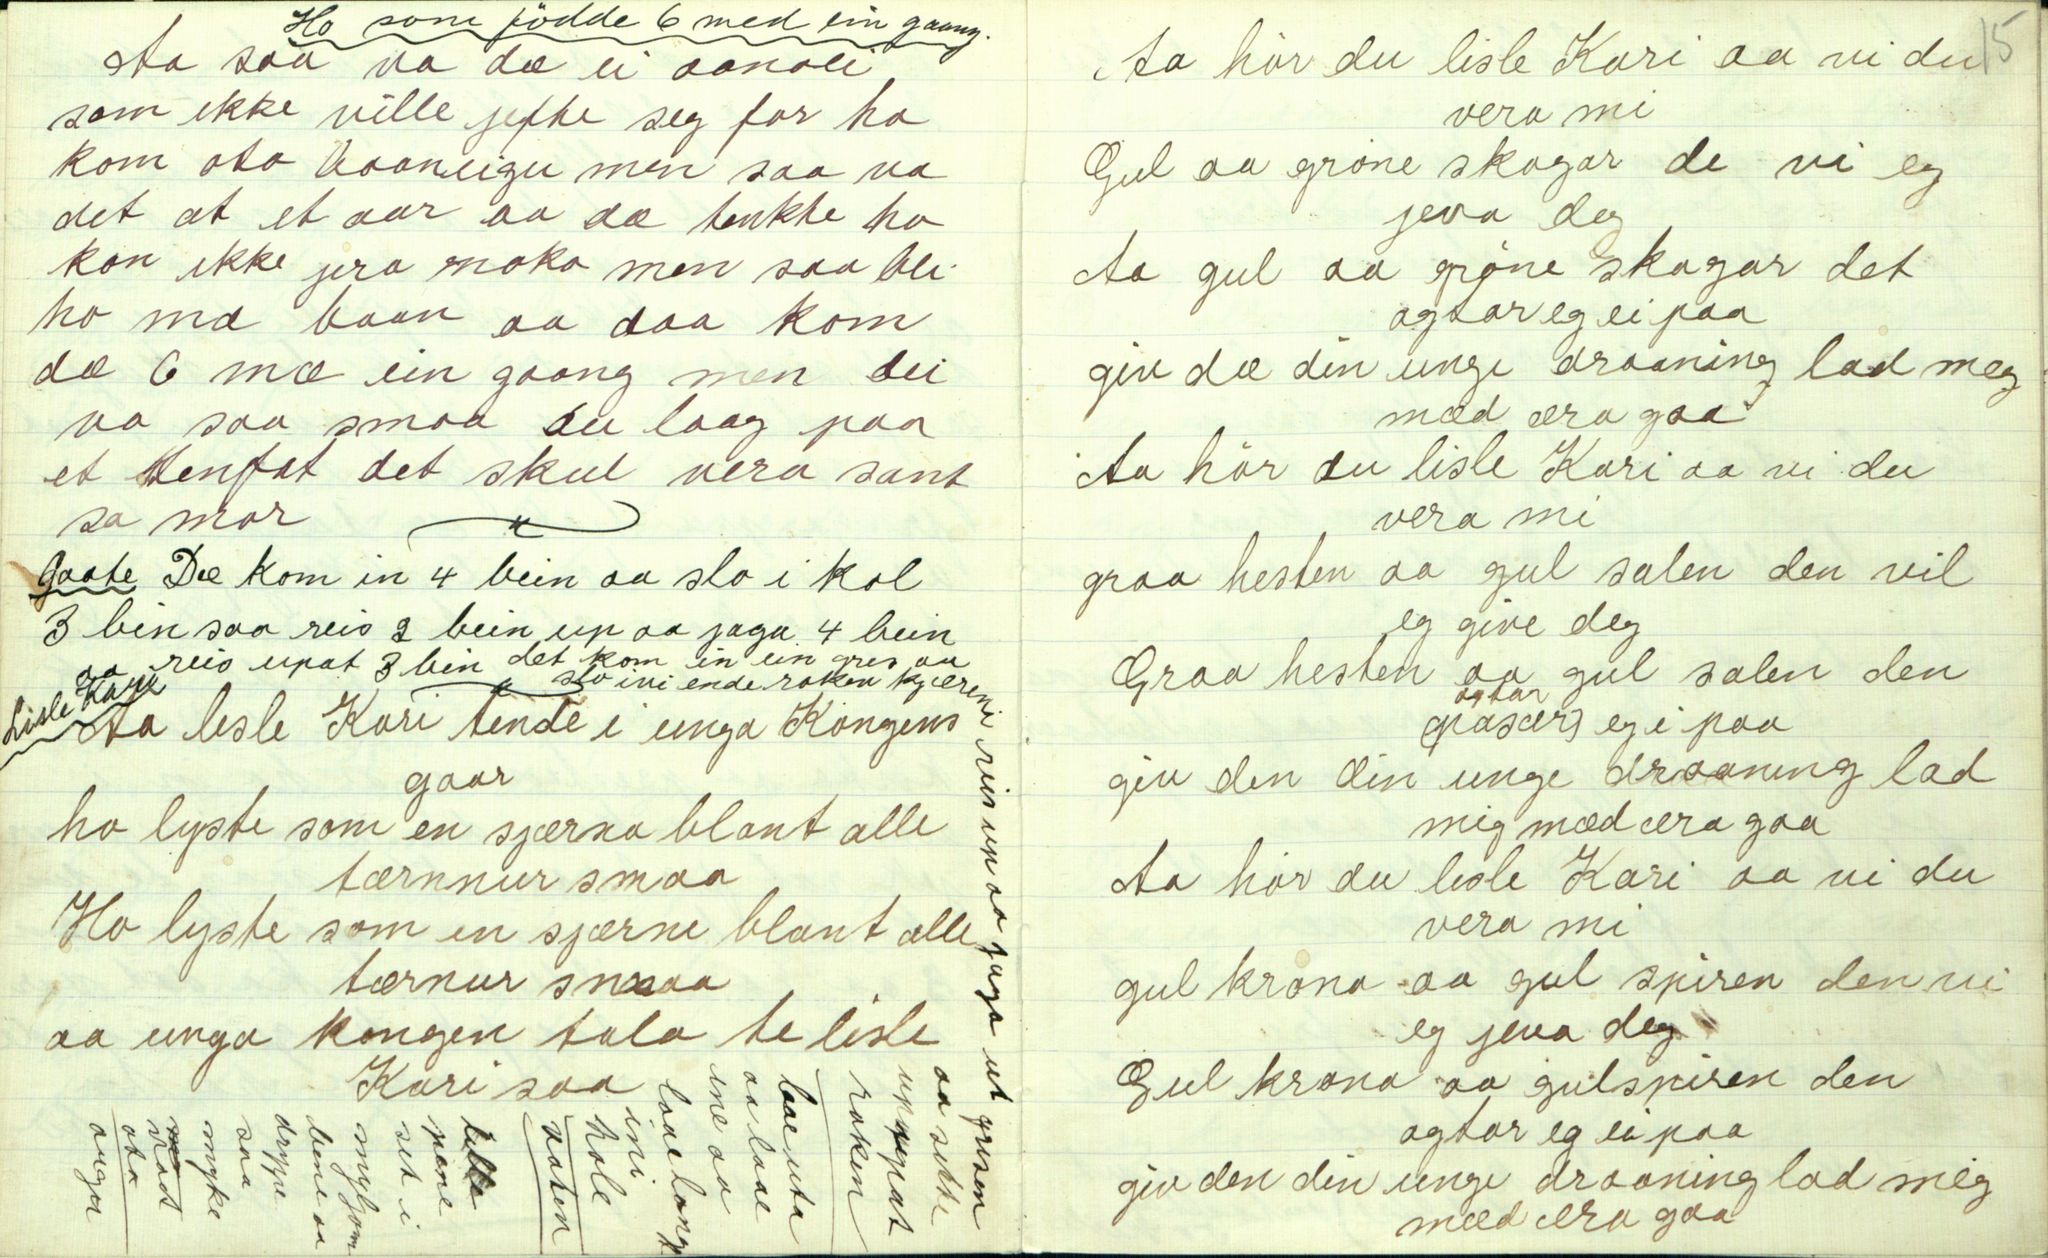 Ho som födde 6 med ein gaang.
Aa saa va dæ ei aanoli
som ikke ville jefte seg for ho
kom ota baaneigu men saa va
det at et aar aa dæ tenkte ho
kan ikke jera noko men saa ble
ho mæ baan aa daa kom
dæ 6 mæ ein gaang men dei
va saa smaa du laag paa
et tenfat det skul vera sant
sa mor
Gaate Dæ kom in 4 bein aa slo i kol
3 bein saa reis 2 bein up aa jaga 4 bein
aa reis upat 3 bein det kom in ein gris aa
slo ivi ende roken kjæreni reis up aa jaga ut grisen
aa sette
upat
roken
Lisle Kari
Aa lisle Kari tende i unga Kongens
gaar
ho lyste som en sjærna blant alle
tærnnur smaa
Ho lyste som en sjærne blant alle
tærnur smaa
aa unga kongen tala te lisle
Kari saa
loe uta
aa loae
ine aa
loae lang
ini
hole
noten
lille
pæne
set i
myljom
bene aa
dryppe
saa
myke
vaat
ota
augru
15
Aa hör du lisle Kari aa vi du
vera mi
Gul aa gröne skogar de vi eg
jeva deg
Aa gul aa gröne skogar det
agtar eg ei paa
giv dæ din unge draaning lad meg
mæd æra gaa
Aa hör du lisle Kari aa vi du
vera mi
graa hesten aa gul salen den vil
eg give deg
Graa hesten aa gul salen den
agtar
(pasær) eg i paa
giv den din unge draaning lad
mig mæd æra gaa
Aa hör du lisle Kari aa vi du
vera mi
gul krona aa gul spiren den vi
eg jeva deg
Gul krona aa gulspiren den
agtar eg ei paa
giv den din unge draaning lad mig
mæd æra gaa